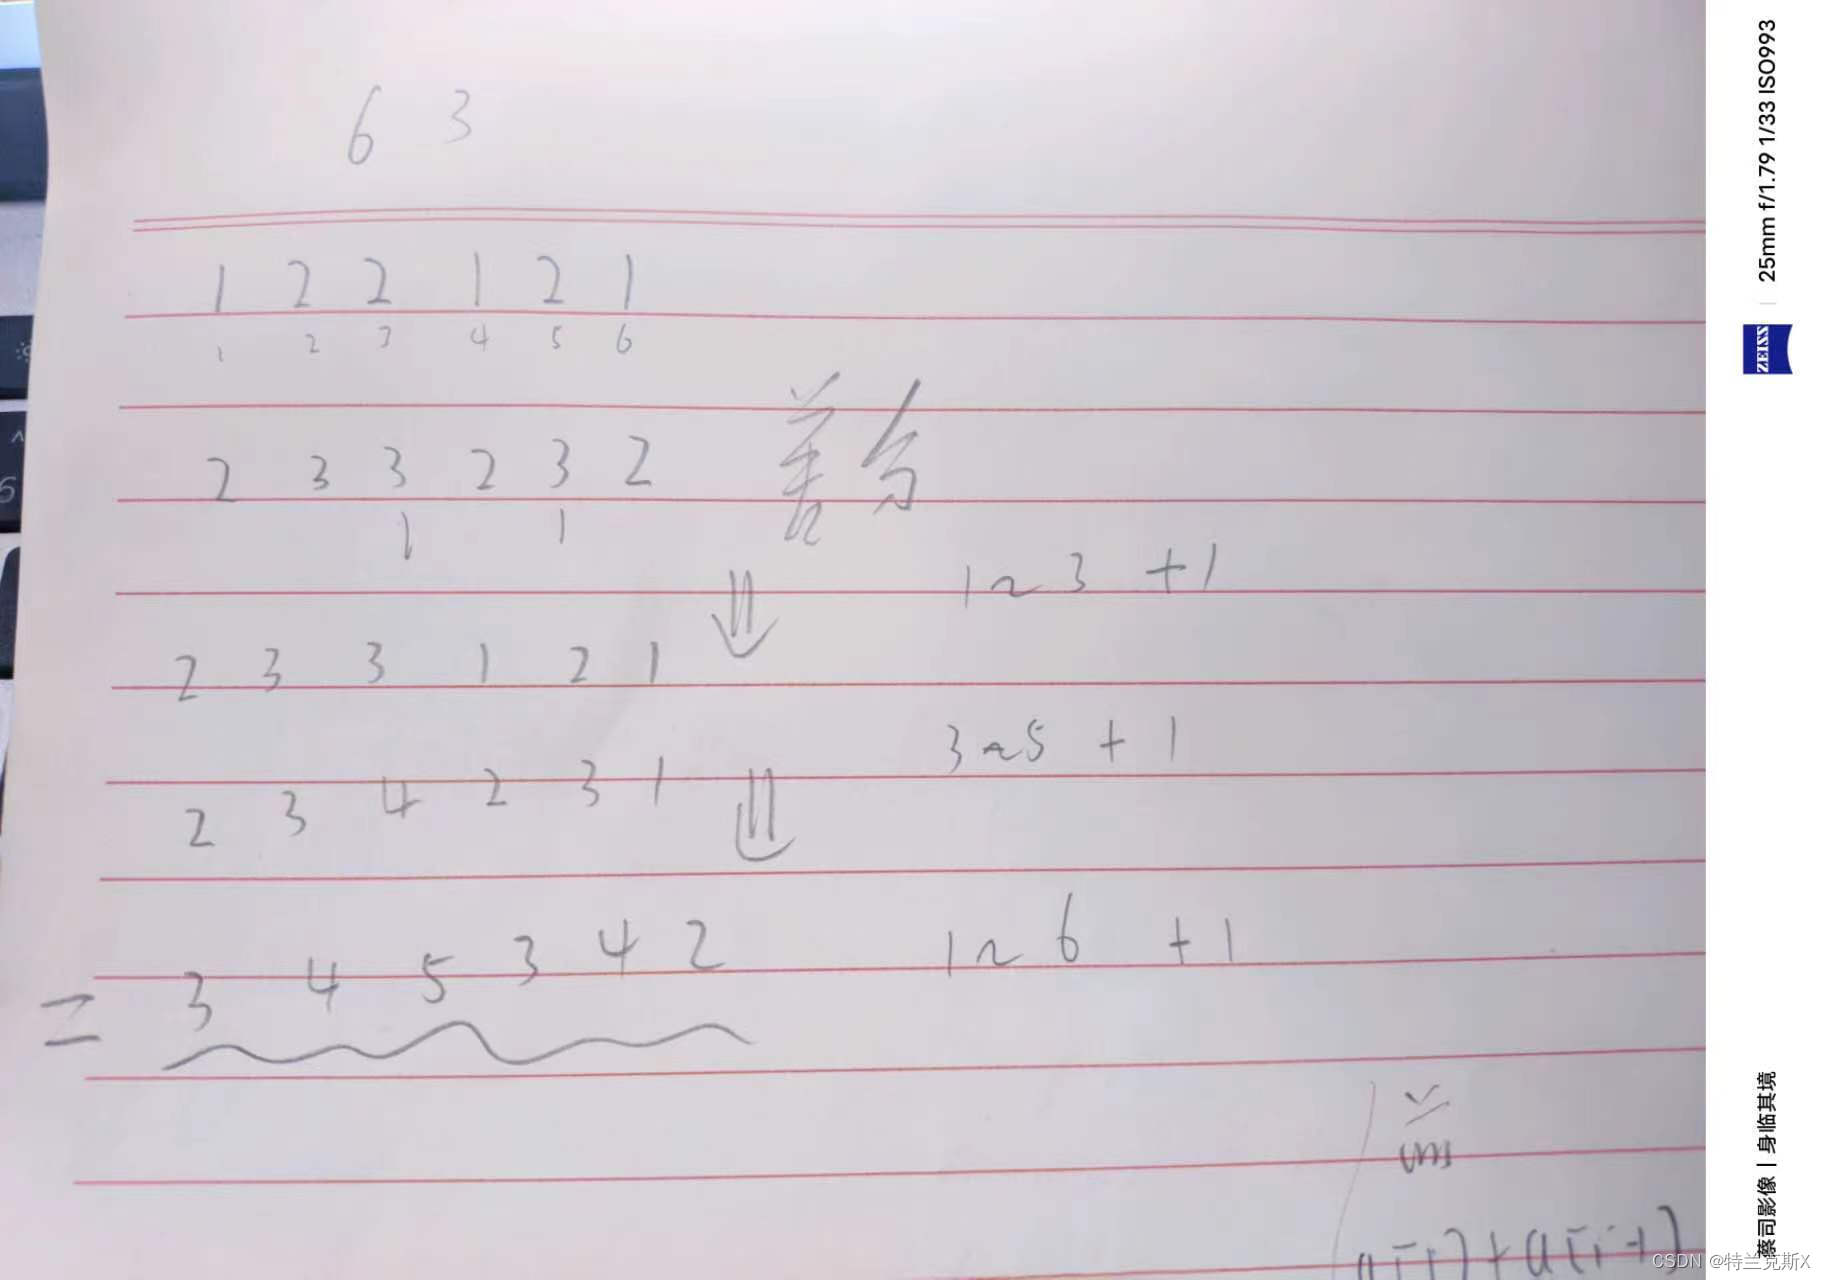 6 3
1 2 2 1 2 1
1 2 3 4 5 6
2 3 3 2 3 2 差分
1 1
1~3 +1
2 3 3 1 2 1
3~5 +1
2 3 4 2 3 1
1~6 +1
= 3 4 5 3 4 2
25mm f/1.79 1/33 ISO993
ZEISS
蔡司影像 | 身临其境
CSDN @特兰克斯X